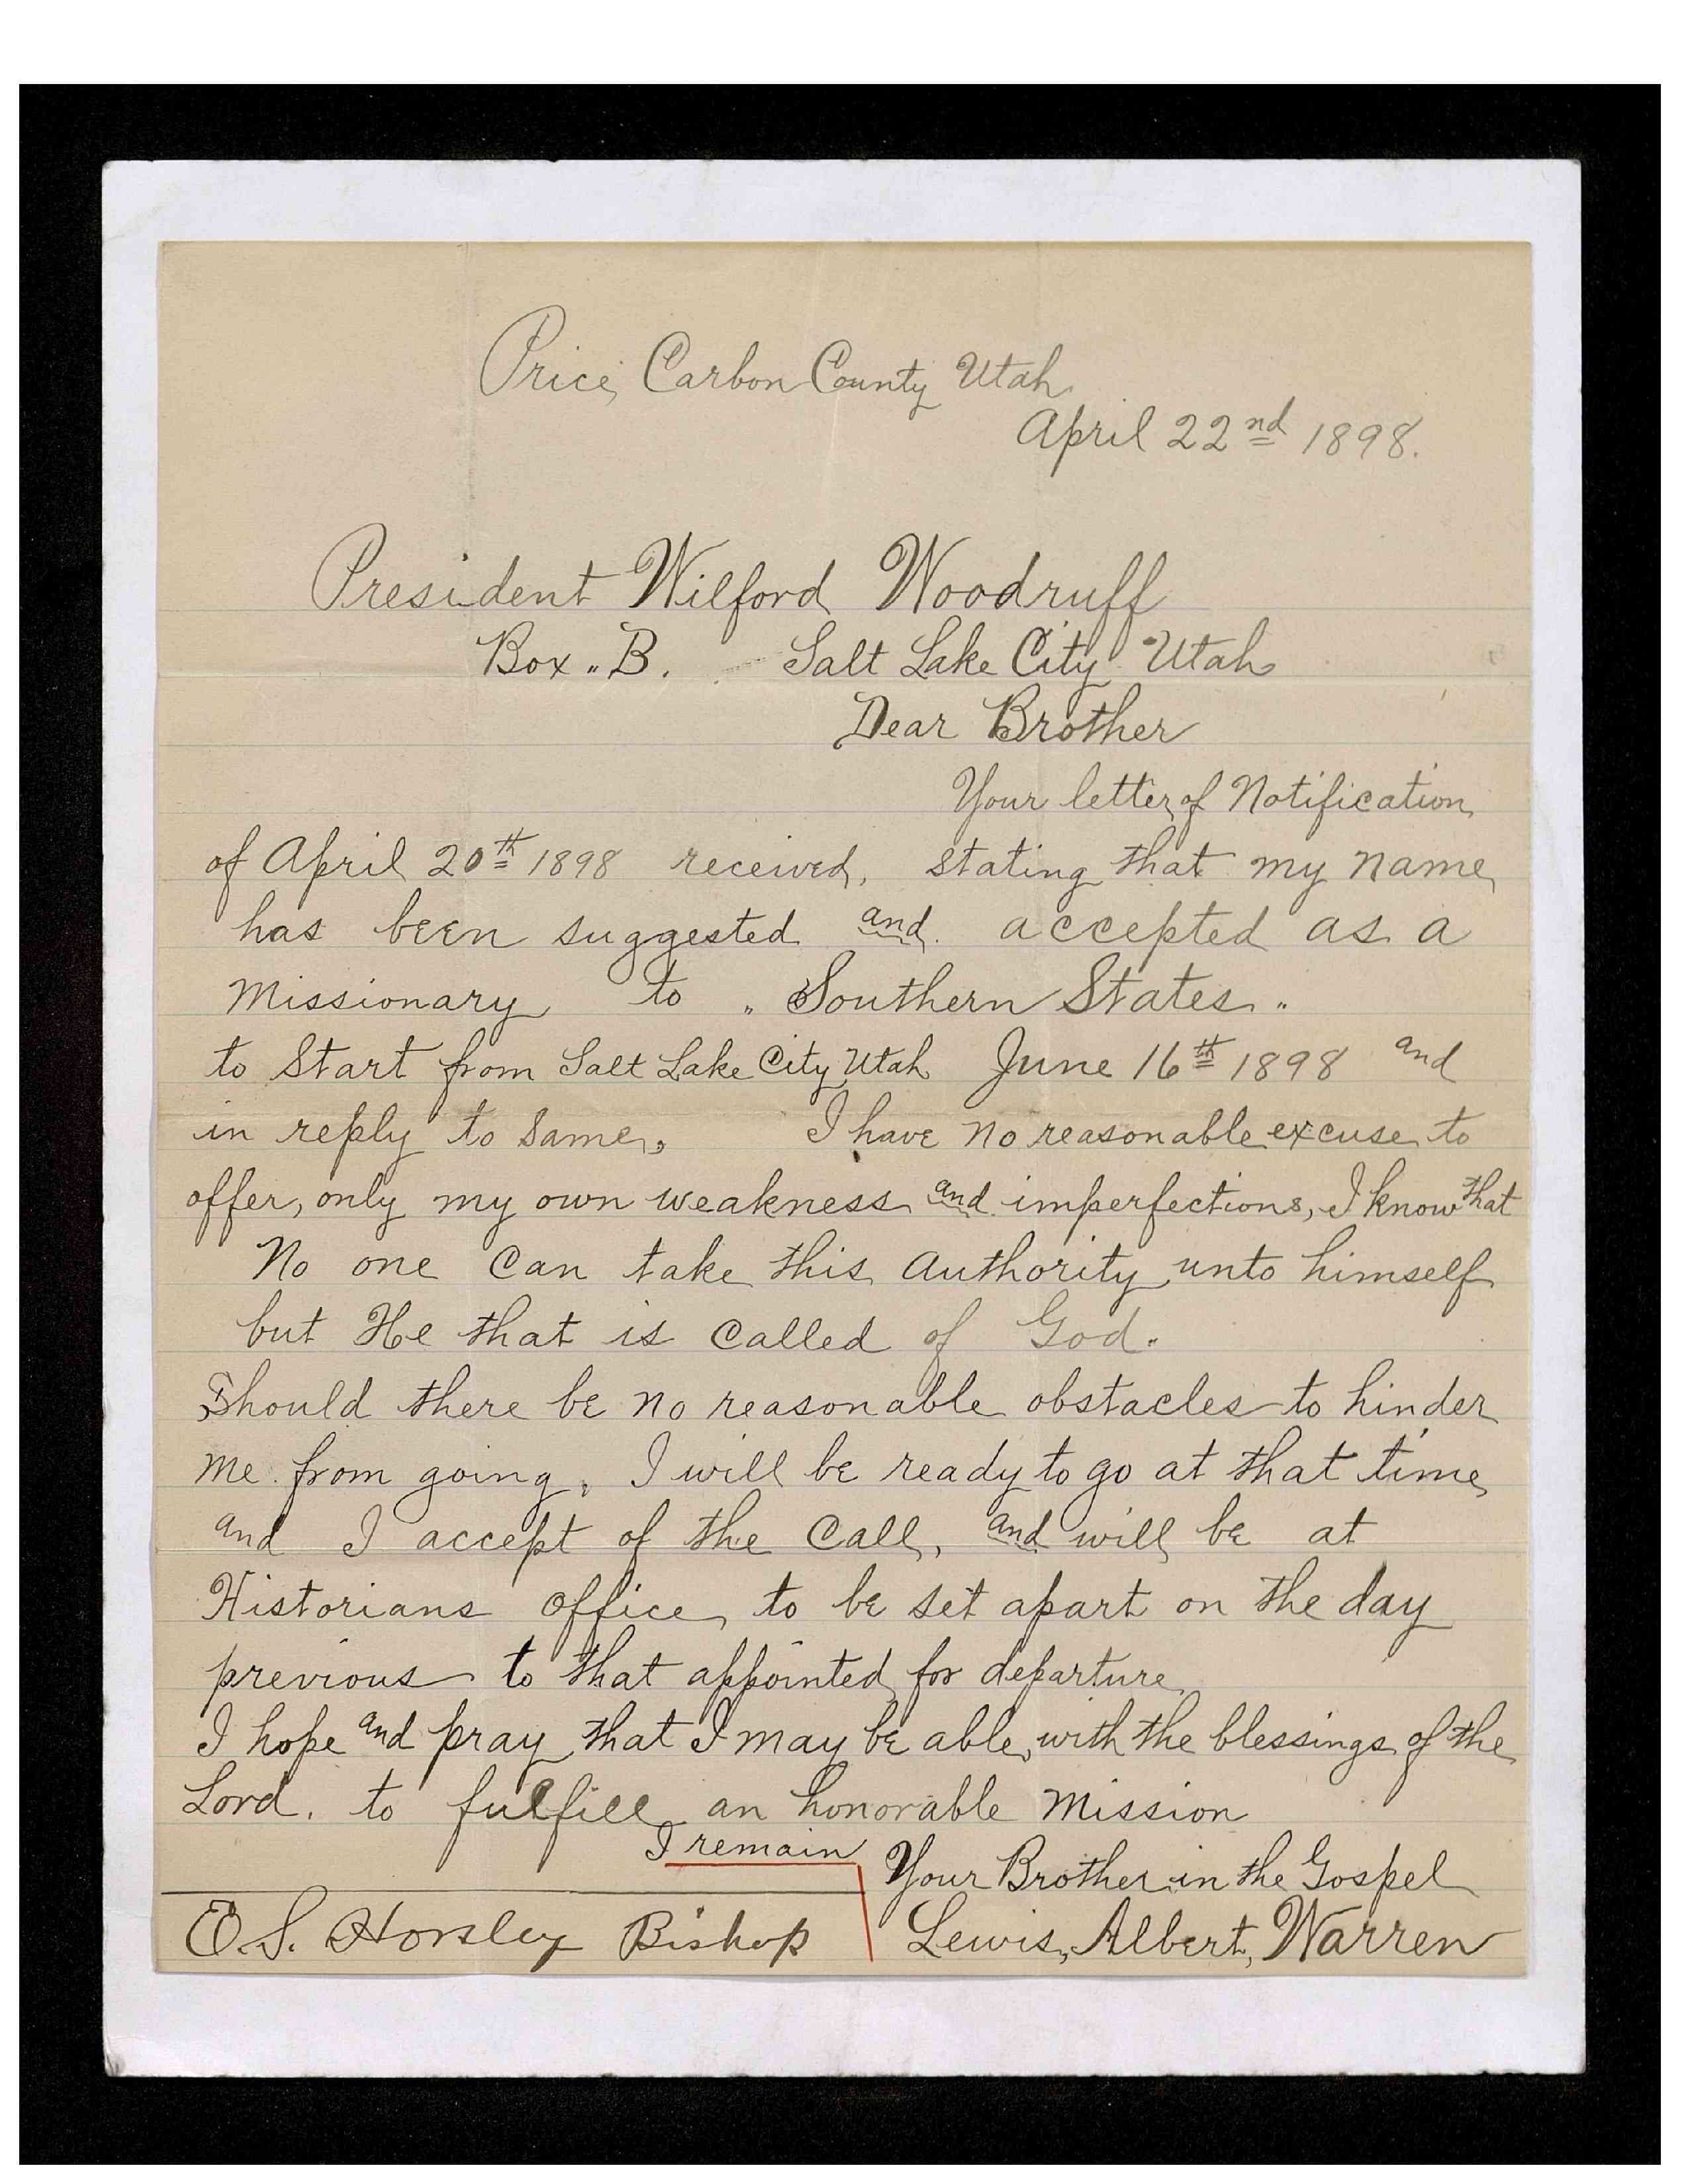 Price, Carbon County Utah
April 22nd 1898.
President Wilford Woodruff
Box "B. Salt Lake City Utah
Dear Brother
Your letter of Notification
of April 20th 1898 received, stating that my name
has been suggested and accepted as a
Missionary to "Southern States"
to Start from Salt Lake City Utah June 16th 1898 and
in reply to Same, I have no reasonable excuse to
offer, only my own weakness and imperfections, I know that
No one Can take this Authority unto himself
but He that is Called of God.
Should there be no reasonable obstacles to hinder
me from going, I will be ready to go at that time
and I accept of the Call, and will be at
Historians office, to be set apart on the day
previous to that appointed for departure
I hope and pray that I may be able, with the blessings of the
Lord. to fulfill an honorable Mission
I remain
Your Brother in the Gospel
E. S. Horsley Bishop
Lewis, Albert, Warren